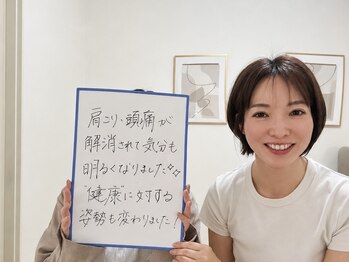 肩こり、頭痛が
解消されて気分も
明るくなりました✨
"健康"に対する
姿勢も変わりました！